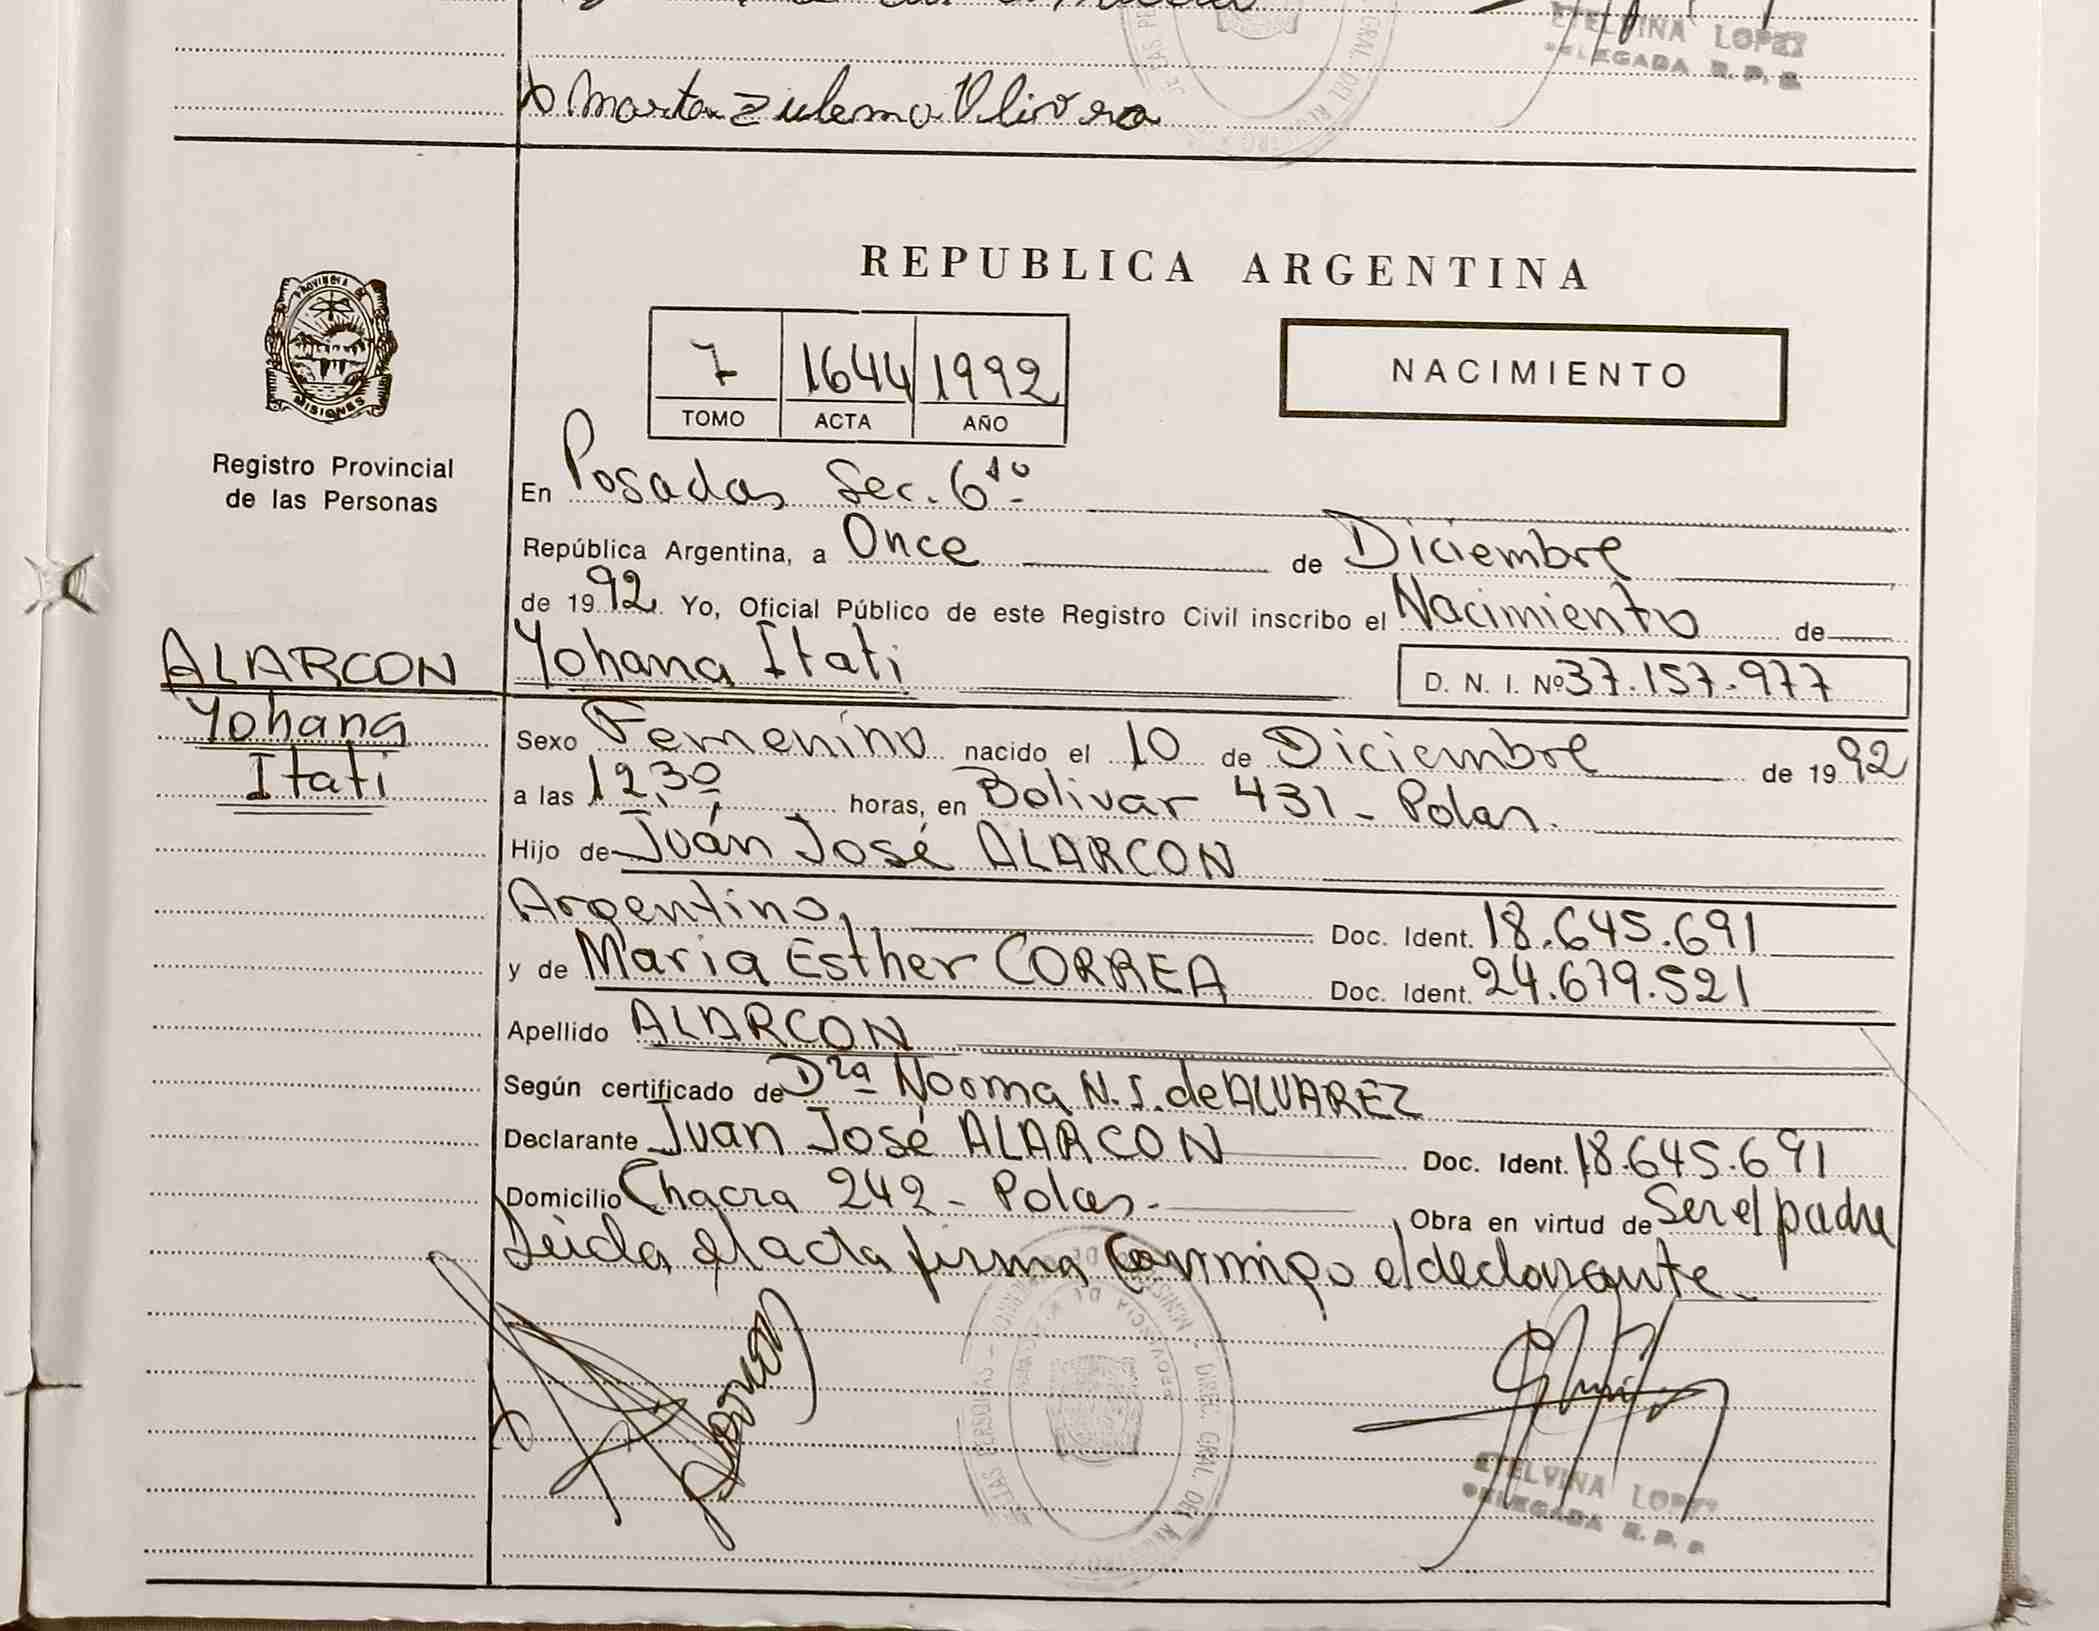 ETELVINA LOPEZ
DELEGADA R. P. P.
Marta Zulema Olivera
REPUBLICA ARGENTINA
PROVINCIA DE
MISIONES
Registro Provincial
de las Personas
7 1644 1992
TOMO ACTA AÑO
NACIMIENTO
En Posadas Sec. 6ta
República Argentina, a Once de Diciembre
de 1992 Yo, Oficial Público de este Registro Civil inscribo el Nacimiento de
ALARCON
Yohana
Itati
Yohana Itati D. N. I. Nº 37.157.977
Sexo Femenino nacido el 10 de Diciembre de 1992
a las 12,30 horas, en Bolivar 431 - Pdas.
Hijo de Juán José ALARCON
Argentino, Doc. Ident. 18.645.691
y de Maria Esther CORREA Doc. Ident. 24.679.521
Apellido ALARCON
Según certificado de Dra Norma N. S. de ALVAREZ
Declarante Juan José ALARCON Doc. Ident. 18.645.691
Domicilio Chacra 242 - Pdas. Obra en virtud de Ser el padre
Leida el acta firma conmigo el declarante
ETELVINA LOPEZ
DELEGADA R. P. P.